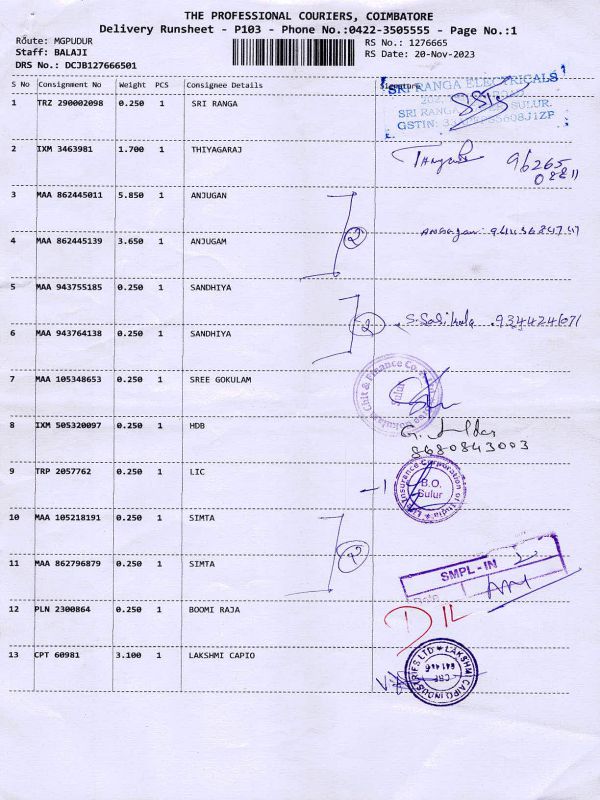 THE PROFESSIONAL COURIERS, COIMBATORE
Delivery Runsheet - P103 - Phone No.:0422-3505555 - Page No.:1
Route: MGPUDUR
RS No.: 1276665
Staff: BALAJI
RS Date: 20-Nov-2023
DRS No.: DCJB127666501
S No Consignment No Weight PCS Consignee Details Signature
SRI RANGA ELECTRICALS
1 TRZ 290002098 0.250 1 SRI RANGA
SULUR.
2 IXM 3463981 1.700 1 THIYAGARAJ
96265
02211
3 MAA 862445011 5.850 1 ANJUGAN
2
4 MAA 862445139 3.650 1 ANJUGAM
5 MAA 943755185 0.250 1 SANDHIYA
2 S. Sasikala 9344246071
6 MAA 943764138 0.250 1 SANDHIYA
Chit & Finance Co.
Sulur
7 MAA 105348653 0.250 1 SREE GOKULAM
8 IXM 505320097 0.250 1 HDB
8680843003
9 TRP 2057762 0.250 1 LIC
Life Insurance Corporation of India
B.O.
Sulur
10 MAA 105218191 0.250 1 SIMTA
2
11 MAA 862796879 0.250 1 SIMTA
SMPL - IN
Date
12 PLN 2300864 0.250 1 BOOMI RAJA
D IL
13 CPT 60981 3.100 1 LAKSHMI CAPIO
LAKSHMI CAIPO INDUSTRIES LTD